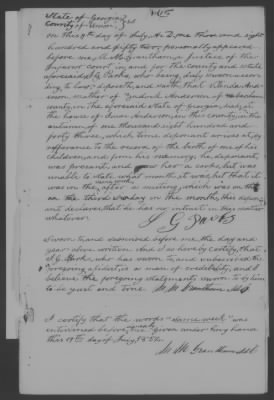 State of Georgia
County of Union } SS
On this 19th day of July, A.D. one thousand eight
hundred and fifty two, personally appeared
before me, M. M. Grantham, a Justice of the
Inferior court in and for the county and state
aforesaid, J. G. Parks, who being duly sworn accor-
ding to law, deposeth and saith that
Anderson, of
county, in the aforesaid state of Georgia, was, at
the house of Anderson, in this county, in the
autumn of one thousand eight hundred and
forty three, which time deponent arrives at, by
reference to the record of the birth of one of his
children, and from his memory, the deponent,
was present, and her in, but was
unable to state what month it was, but that it
was on the, after a meeting, which was on the
on the third Sunday on the month, this depon-
ent declares that he has no interest in this matter
whatever.
J G Parks
Sworn to and subscribed before me the day and
year above written. And I hereby certify, that
J. G. Parks, who has sworn to, and subscribed the
foregoing affidavit is a man of credibility, and I
believe the foregoing statements sworn to by him
to be just and true. M. M. Grantham
I certify that the words "same week" was
interlined before given under my hand
this 19th day of July, 1852.
M. M. Grantham